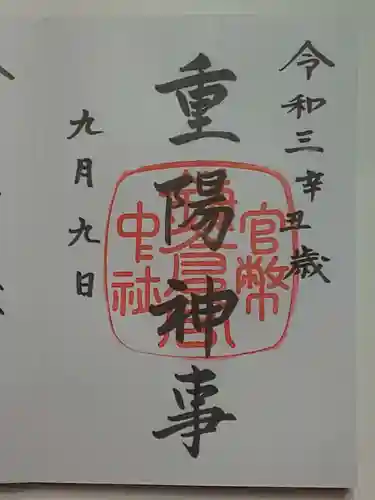 令和三辛丑歳
重陽神事
九月九日
官幣
中社